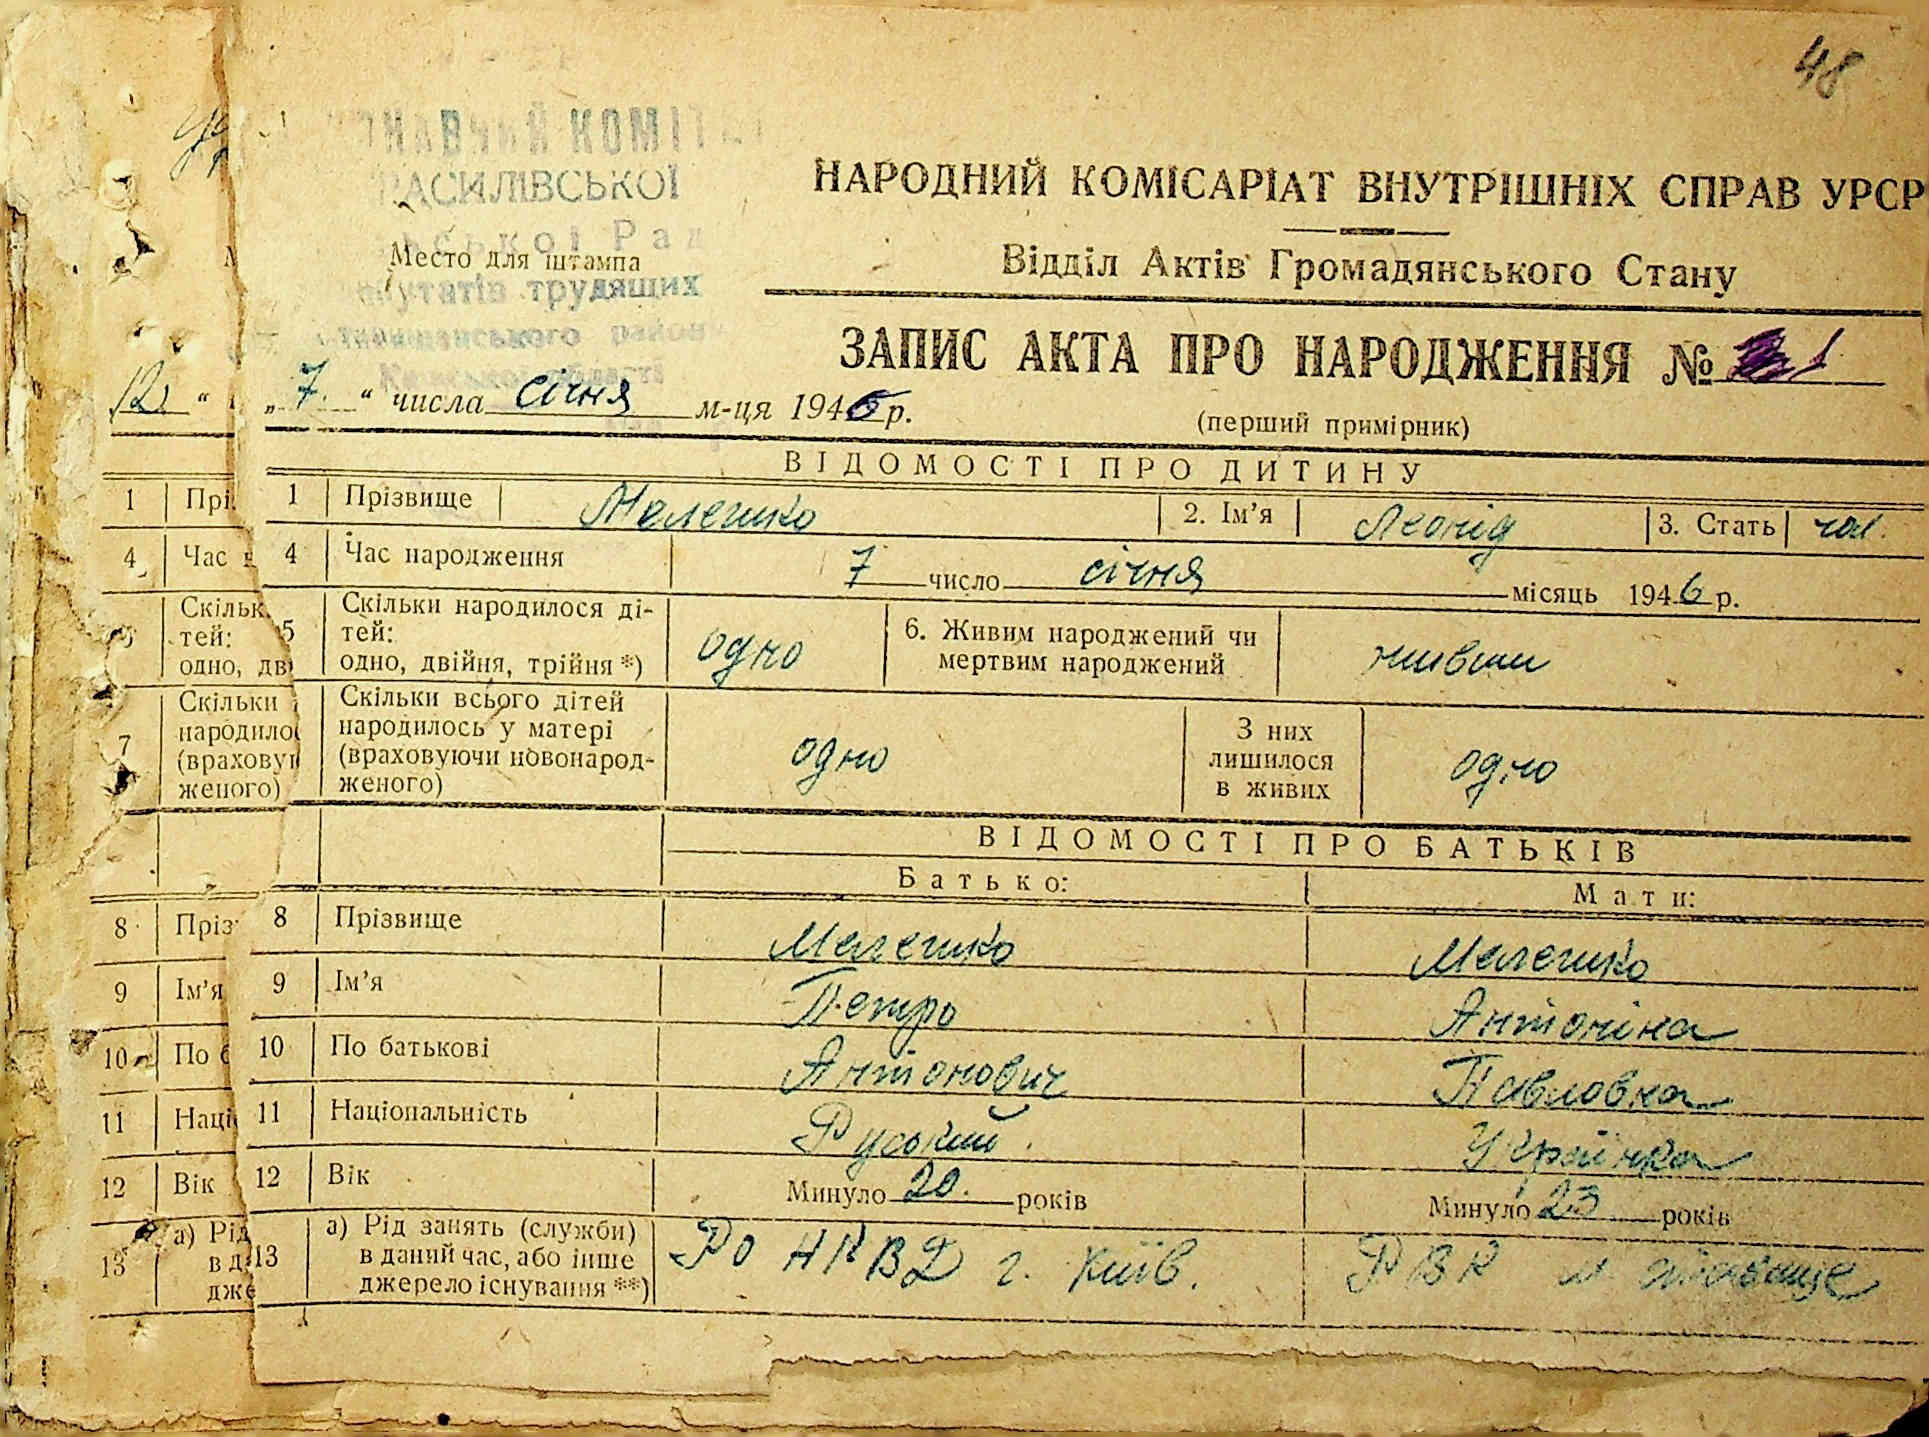 48
НАВЧИЙ КОМІТ
РАСИЛІВСЬКОЇ
ської Рад
Место для штампа
путатів трудящих
ського район
Київської області
НАРОДНИЙ КОМІСАРІАТ ВНУТРІШНІХ СПРАВ УРСР
Відділ Актів Громадянського Стану
ЗАПИС АКТА ПРО НАРОДЖЕННЯ № 1
12 "
„ 7. " числа січня м-ця 1946 р.
(перший примірник)
ВІДОМОСТІ ПРО ДИТИНУ
1 Прі
1 Прізвище Мелешко 2. Ім'я Леонід 3. Стать чол.
4 Час н
4 Час народження 7 число січня місяць 1946 р.
Скільк
тей:
одно, дві
5 Скільки народилося ді-
тей:
одно, двійня, трійня *) одно 6. Живим народжений чи
мертвим народжений живим
7 Скільки
народило
(врахову
женого)
Скільки всього дітей
народилось у матері
(враховуючи новонарод-
женого) одно З них
лишилося
в живих одно
ВІДОМОСТІ ПРО БАТЬКІВ
Батько: Мати:
8 Пріз
8 Прізвище Мелешко Мелешко
9 Ім'я
9 Ім'я Петро Антоніна
10 По б
10 По батькові Антонович Павловна
11 Наці
11 Національність Руський. Українка
12 Вік
12 Вік Минуло 20. років Минуло 23 років
13 а) Рід
в д
дже
13 а) Рід занять (служби)
в даний час, або інше
джерело існування **) РО НКВД г. Київ. РВК м. Ставище